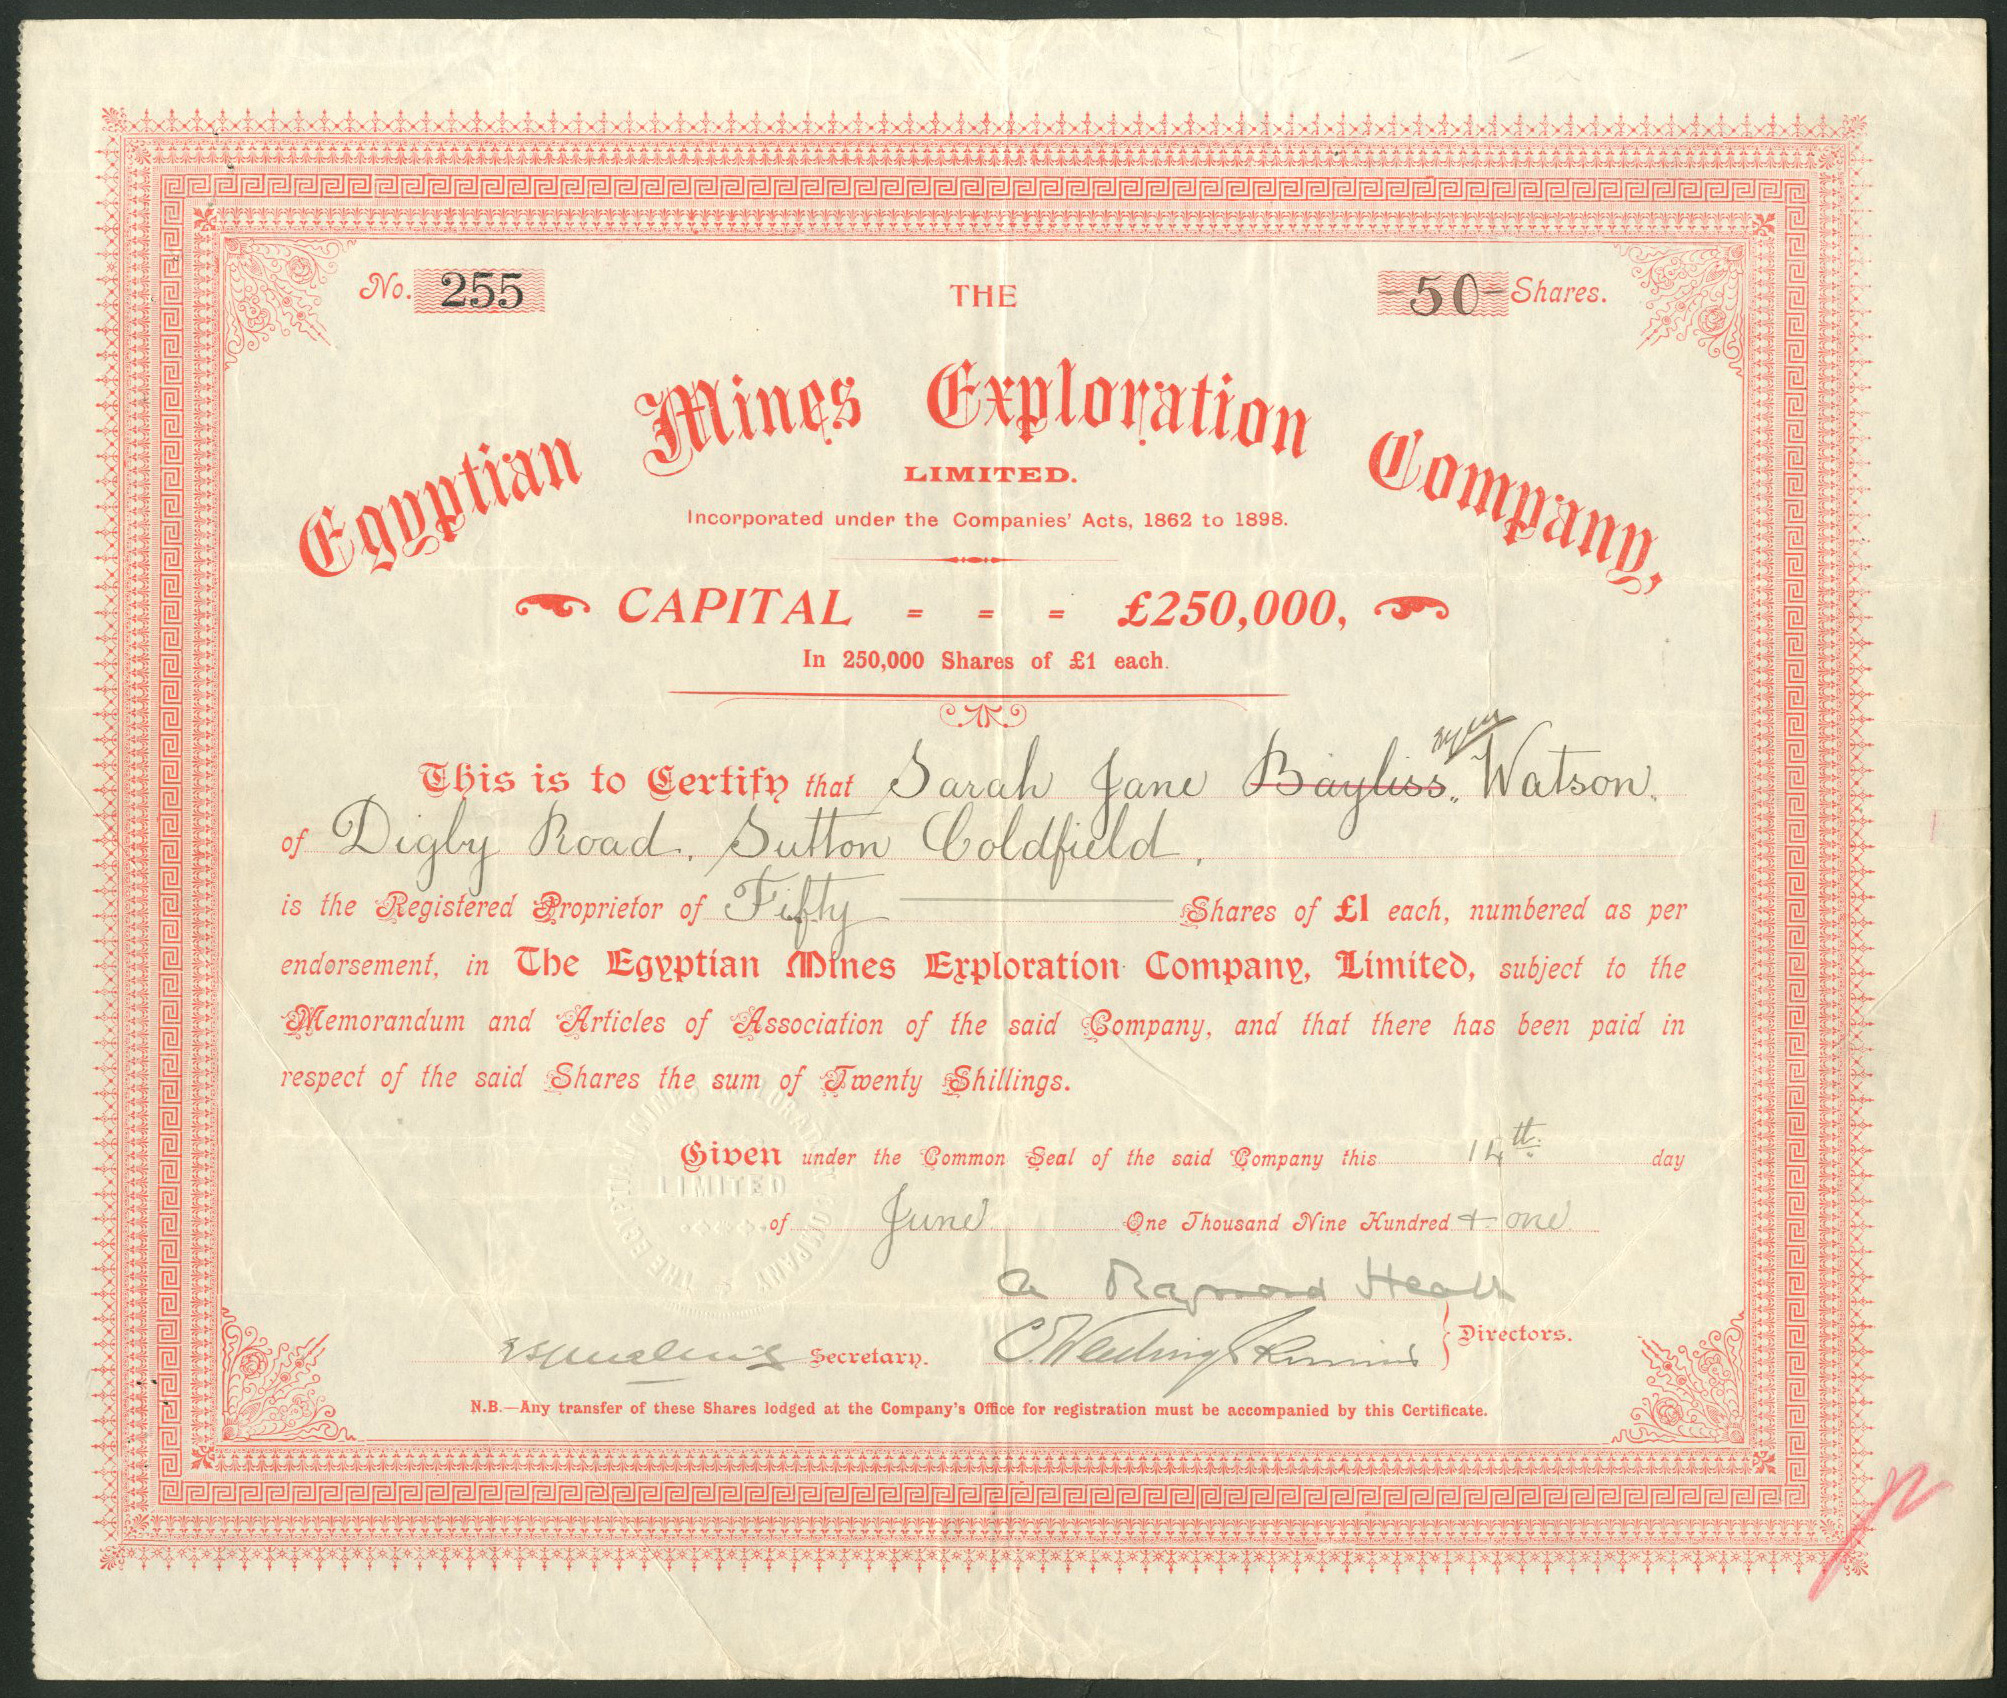 No. 255
THE
-50- Shares.
Egyptian Mines Exploration Company,
LIMITED.
Incorporated under the Companies' Acts, 1862 to 1898.
CAPITAL = = = £250,000,
In 250,000 Shares of £1 each.
This is to Certify that Sarah Jane Bayliss Watson.
of Digby Road. Sutton Coldfield.
is the Registered Proprietor of Fifty Shares of £1 each, numbered as per
endorsement, in The Egyptian Mines Exploration Company, Limited, subject to the
Memorandum and Articles of Association of the said Company, and that there has been paid in
respect of the said Shares the sum of Twenty Shillings.
THE EGYPTIAN MINES EXPLORATION COMPANY
LIMITED
Given under the Common Seal of the said Company this 14th day
of June One Thousand Nine Hundred & one
A Raymond Heath
Secretary.
Directors.
N.B.—Any transfer of these Shares lodged at the Company's Office for registration must be accompanied by this Certificate.